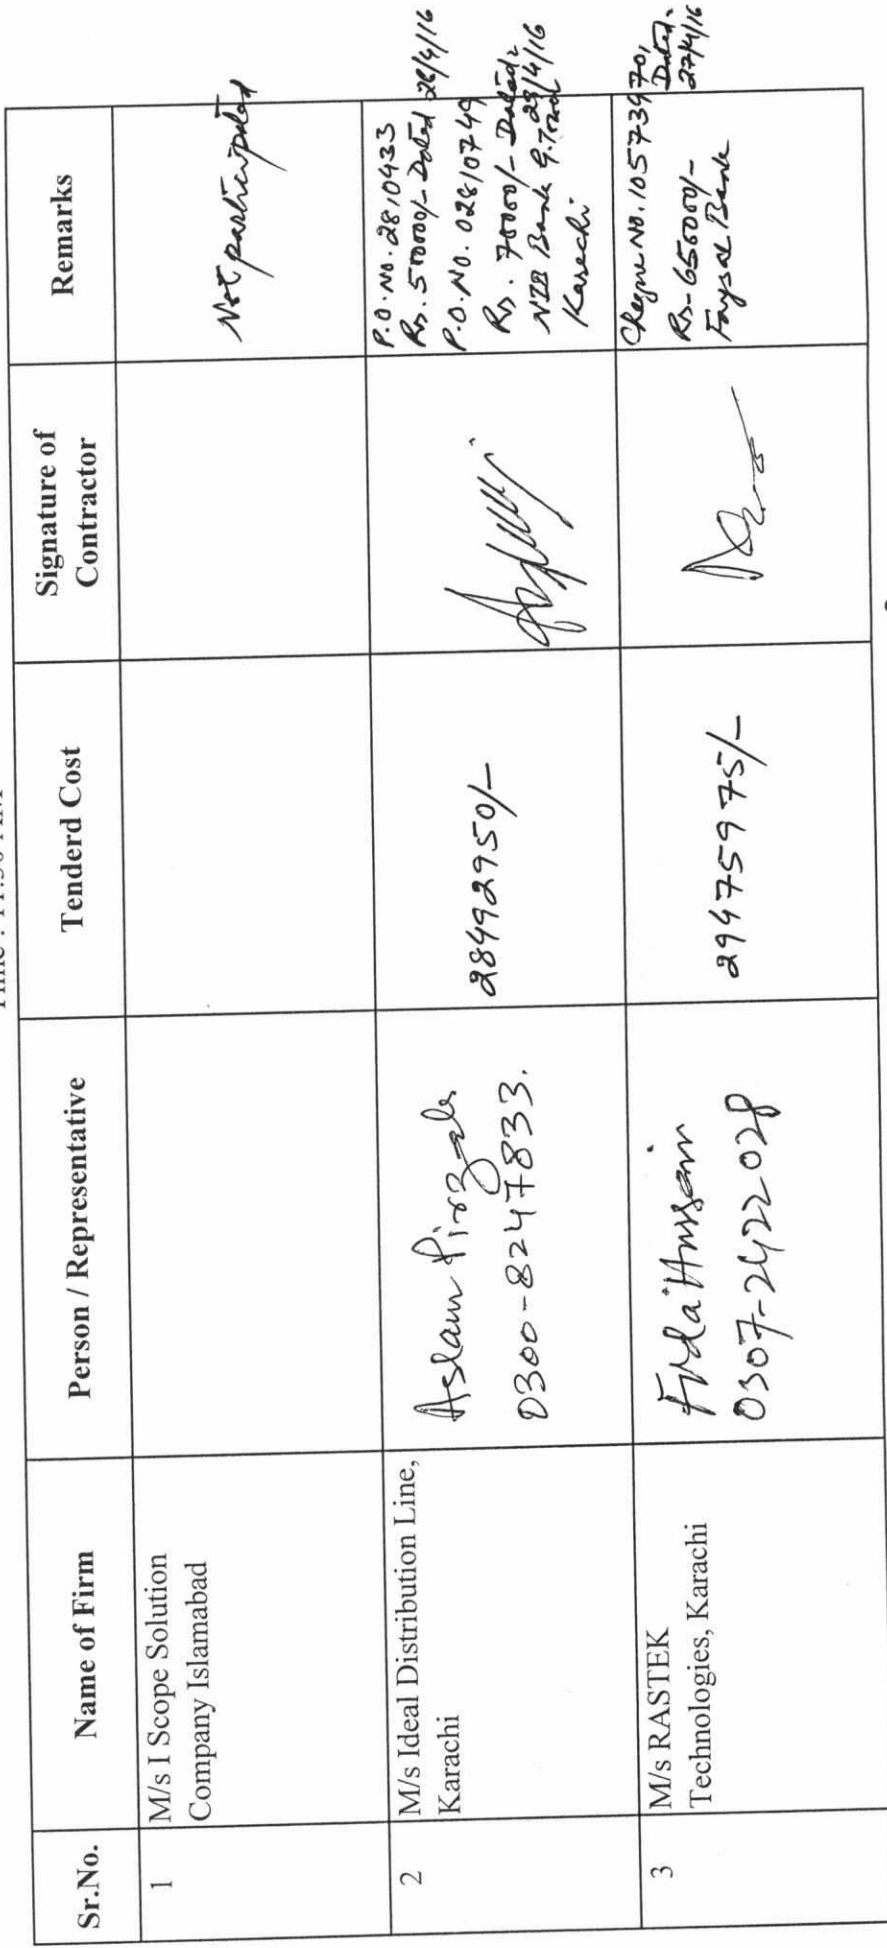 Time : 11:30 AM
Sr.No.
Name of Firm
Person / Representative
Tenderd Cost
Signature of
Contractor
Remarks
1
M/s I Scope Solution
Company Islamabad
Not participated
2
M/s Ideal Distribution Line,
Karachi
Aslam Pirzada
0300-8247833.
28492950/-
P.O.No.2810433
Rs.500000/-Dated 28/4/16
P.O.NO.02810749
Rs.70000/-Dated:
28/4/16
NIB Bank
Karachi
3
M/s RASTEK
Technologies, Karachi
Fida Hussain
0307-2422028
29475975/-
Cheque No.10573970,
Rs-650000/- Dated:
27/4/16
Faysal Bank